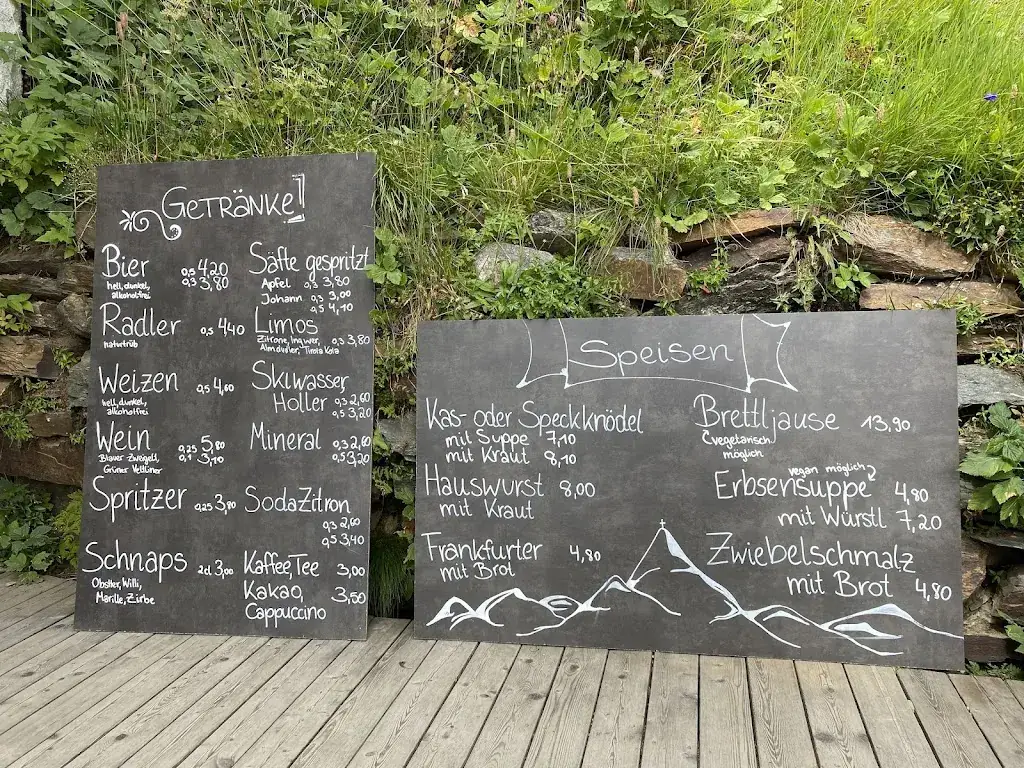 GETRÄNKE
Bier 0,5 4,20
hell, dunkel, 0,3 3,80
alkoholfrei
Radler 0,5 4,40
naturtrüb
Weizen 0,5 4,60
hell, dunkel,
alkoholfrei
Wein 0,25 5,80
Blauer Zweigelt, 0,1 3,10
Grüner Veltliner
Spritzer 0,25 3,80
Schnaps 2cl 3,00
Obstler, Willi,
Marille, Zirbe
Säfte gespritzt
Apfel 0,3 3,80
Johann. 0,3 3,00
0,5 4,10
Limos
Zitrone, Ingwer, 0,3 3,80
Almdudler, Tirola Kola
Skiwasser
Holler 0,3 2,60
0,5 3,20
Mineral 0,3 2,60
0,5 3,20
SodaZitron
0,3 2,60
0,5 3,40
Kaffee, Tee 3,00
Kakao, 3,50
Cappuccino
Speisen
Kas- oder Speckknödel
mit Suppe 7,10
mit Kraut 8,10
Hauswurst 8,00
mit Kraut
Frankfurter 4,80
mit Brot
Brettljause 13,90
vegetarisch
möglich
vegan möglich
Erbsensuppe 4,80
mit Würstl 7,20
Zwiebelschmalz
mit Brot 4,80